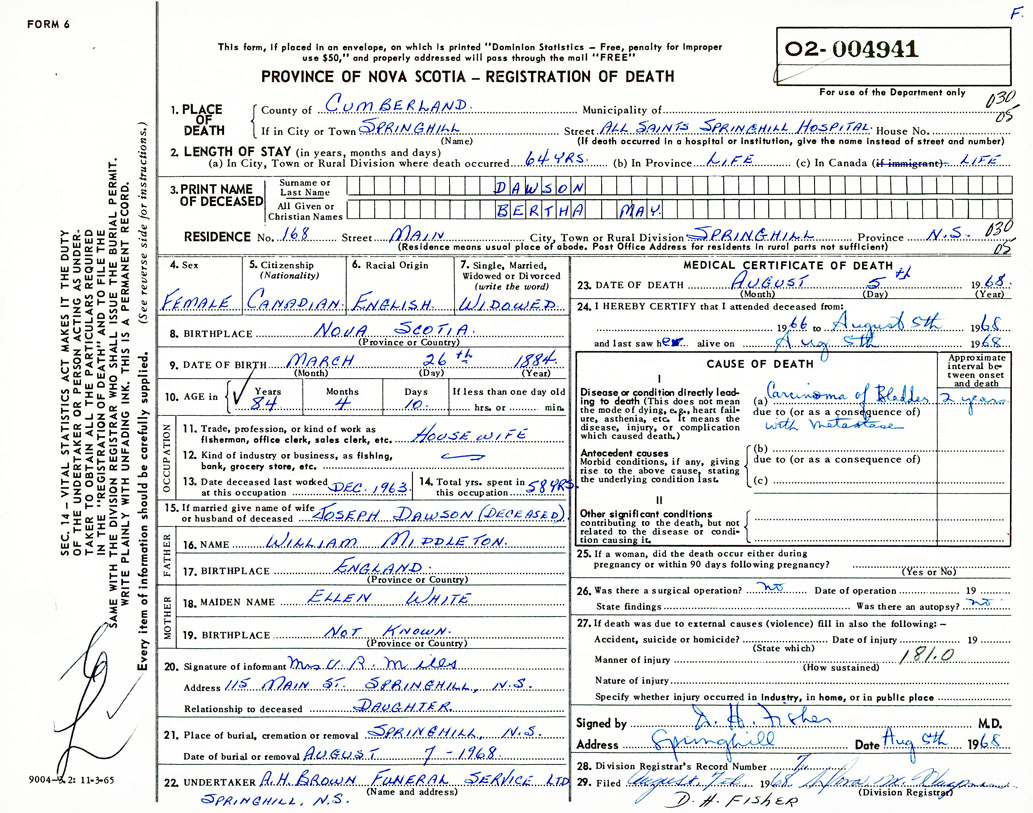 F.
FORM 6
This form, if placed in an envelope, on which is printed "Dominion Statistics – Free, penalty for improper
use $50," and properly addressed will pass through the mail "FREE"
PROVINCE OF NOVA SCOTIA – REGISTRATION OF DEATH
02-004941
For use of the Department only
030
05
1. PLACE OF DEATH
County of CUMBERLAND. Municipality of
If in City or Town SPRINGHILL Street ALL SAINTS SPRINGHILL HOSPITAL. House No.
(Name) (If death occurred in a hospital or institution, give the name instead of street and number)
2. LENGTH OF STAY (in years, months and days)
(a) In City, Town or Rural Division where death occurred 64 YRS. (b) In Province LIFE (c) In Canada (if immigrant) LIFE
3. PRINT NAME OF DECEASED
Surname or Last Name DAWSON
All Given or Christian Names BERTHA MAY.
RESIDENCE No. 168 Street MAIN City, Town or Rural Division SPRINGHILL Province N.S. 030
05
(Residence means usual place of abode. Post Office Address for residents in rural parts not sufficient)
4. Sex FEMALE
5. Citizenship (Nationality) CANADIAN.
6. Racial Origin ENGLISH.
7. Single, Married, Widowed or Divorced (write the word) WIDOWED.
8. BIRTHPLACE NOVA SCOTIA.
(Province or Country)
9. DATE OF BIRTH MARCH 26th 1884.
(Month) (Day) (Year)
10. AGE in Years 84 Months 4 Days 10. If less than one day old
hrs. or min.
OCCUPATION
11. Trade, profession, or kind of work as HOUSEWIFE
fisherman, office clerk, sales clerk, etc.
12. Kind of industry or business, as fishing,
bank, grocery store, etc.
13. Date deceased last worked at this occupation DEC. 1963.
14. Total yrs. spent in this occupation 58 YRS.
15. If married give name of wife or husband of deceased JOSEPH DAWSON (DECEASED).
FATHER
16. NAME WILLIAM MIDDLETON.
17. BIRTHPLACE ENGLAND.
(Province or Country)
MOTHER
18. MAIDEN NAME ELLEN WHITE
19. BIRTHPLACE NOT KNOWN.
(Province or Country)
20. Signature of informant Mrs V. R. Mills
Address 115 MAIN ST. SPRINGHILL, N.S.
Relationship to deceased DAUGHTER.
21. Place of burial, cremation or removal SPRINGHILL, N.S.
Date of burial or removal AUGUST 7 - 1968.
22. UNDERTAKER A.H. BROWN FUNERAL SERVICE LTD
(Name and address)
SPRINGHILL, N.S.
MEDICAL CERTIFICATE OF DEATH
23. DATE OF DEATH AUGUST 5th 1968.
(Month) (Day) (Year)
24. I HEREBY CERTIFY that I attended deceased from:
1966 to August 5th 1968
and last saw her alive on Aug 5th 1968.
CAUSE OF DEATH
Approximate interval between onset and death
I
Disease or condition directly leading to death (This does not mean the mode of dying, e.g., heart failure, asthenia, etc. It means the disease, injury, or complication which caused death.)
(a) Carcinoma of Bladder 2 years
due to (or as a consequence of)
with metastase
Antecedent causes
Morbid conditions, if any, giving rise to the above cause, stating the underlying condition last.
(b)
due to (or as a consequence of)
(c)
II
Other significant conditions
contributing to the death, but not related to the disease or condition causing it.
25. If a woman, did the death occur either during
pregnancy or within 90 days following pregnancy?
(Yes or No)
26. Was there a surgical operation? no Date of operation 19
State findings Was there an autopsy? no
27. If death was due to external causes (violence) fill in also the following: –
Accident, suicide or homicide? Date of injury 19
(State which)
Manner of injury 181.0
(How sustained)
Nature of injury
Specify whether injury occurred in industry, in home, or in public place
Signed by D. H. Fisher M.D.
Address Springhill Date Aug 5th 1968
28. Division Registrar's Record Number 7
29. Filed August 7th 1968
(Division Registrar)
D. H. FISHER
SEC. 14 – VITAL STATISTICS ACT MAKES IT THE DUTY
OF THE UNDERTAKER OR PERSON ACTING AS UNDER-
TAKER TO OBTAIN ALL THE PARTICULARS REQUIRED
IN THE "REGISTRATION OF DEATH" AND TO FILE THE
SAME WITH THE DIVISION REGISTRAR WHO SHALL ISSUE THE BURIAL PERMIT.
WRITE PLAINLY WITH UNFADING INK. THIS IS A PERMANENT RECORD.
Every item of information should be carefully supplied. (See reverse side for instructions.)
9004-2: 11-3-65